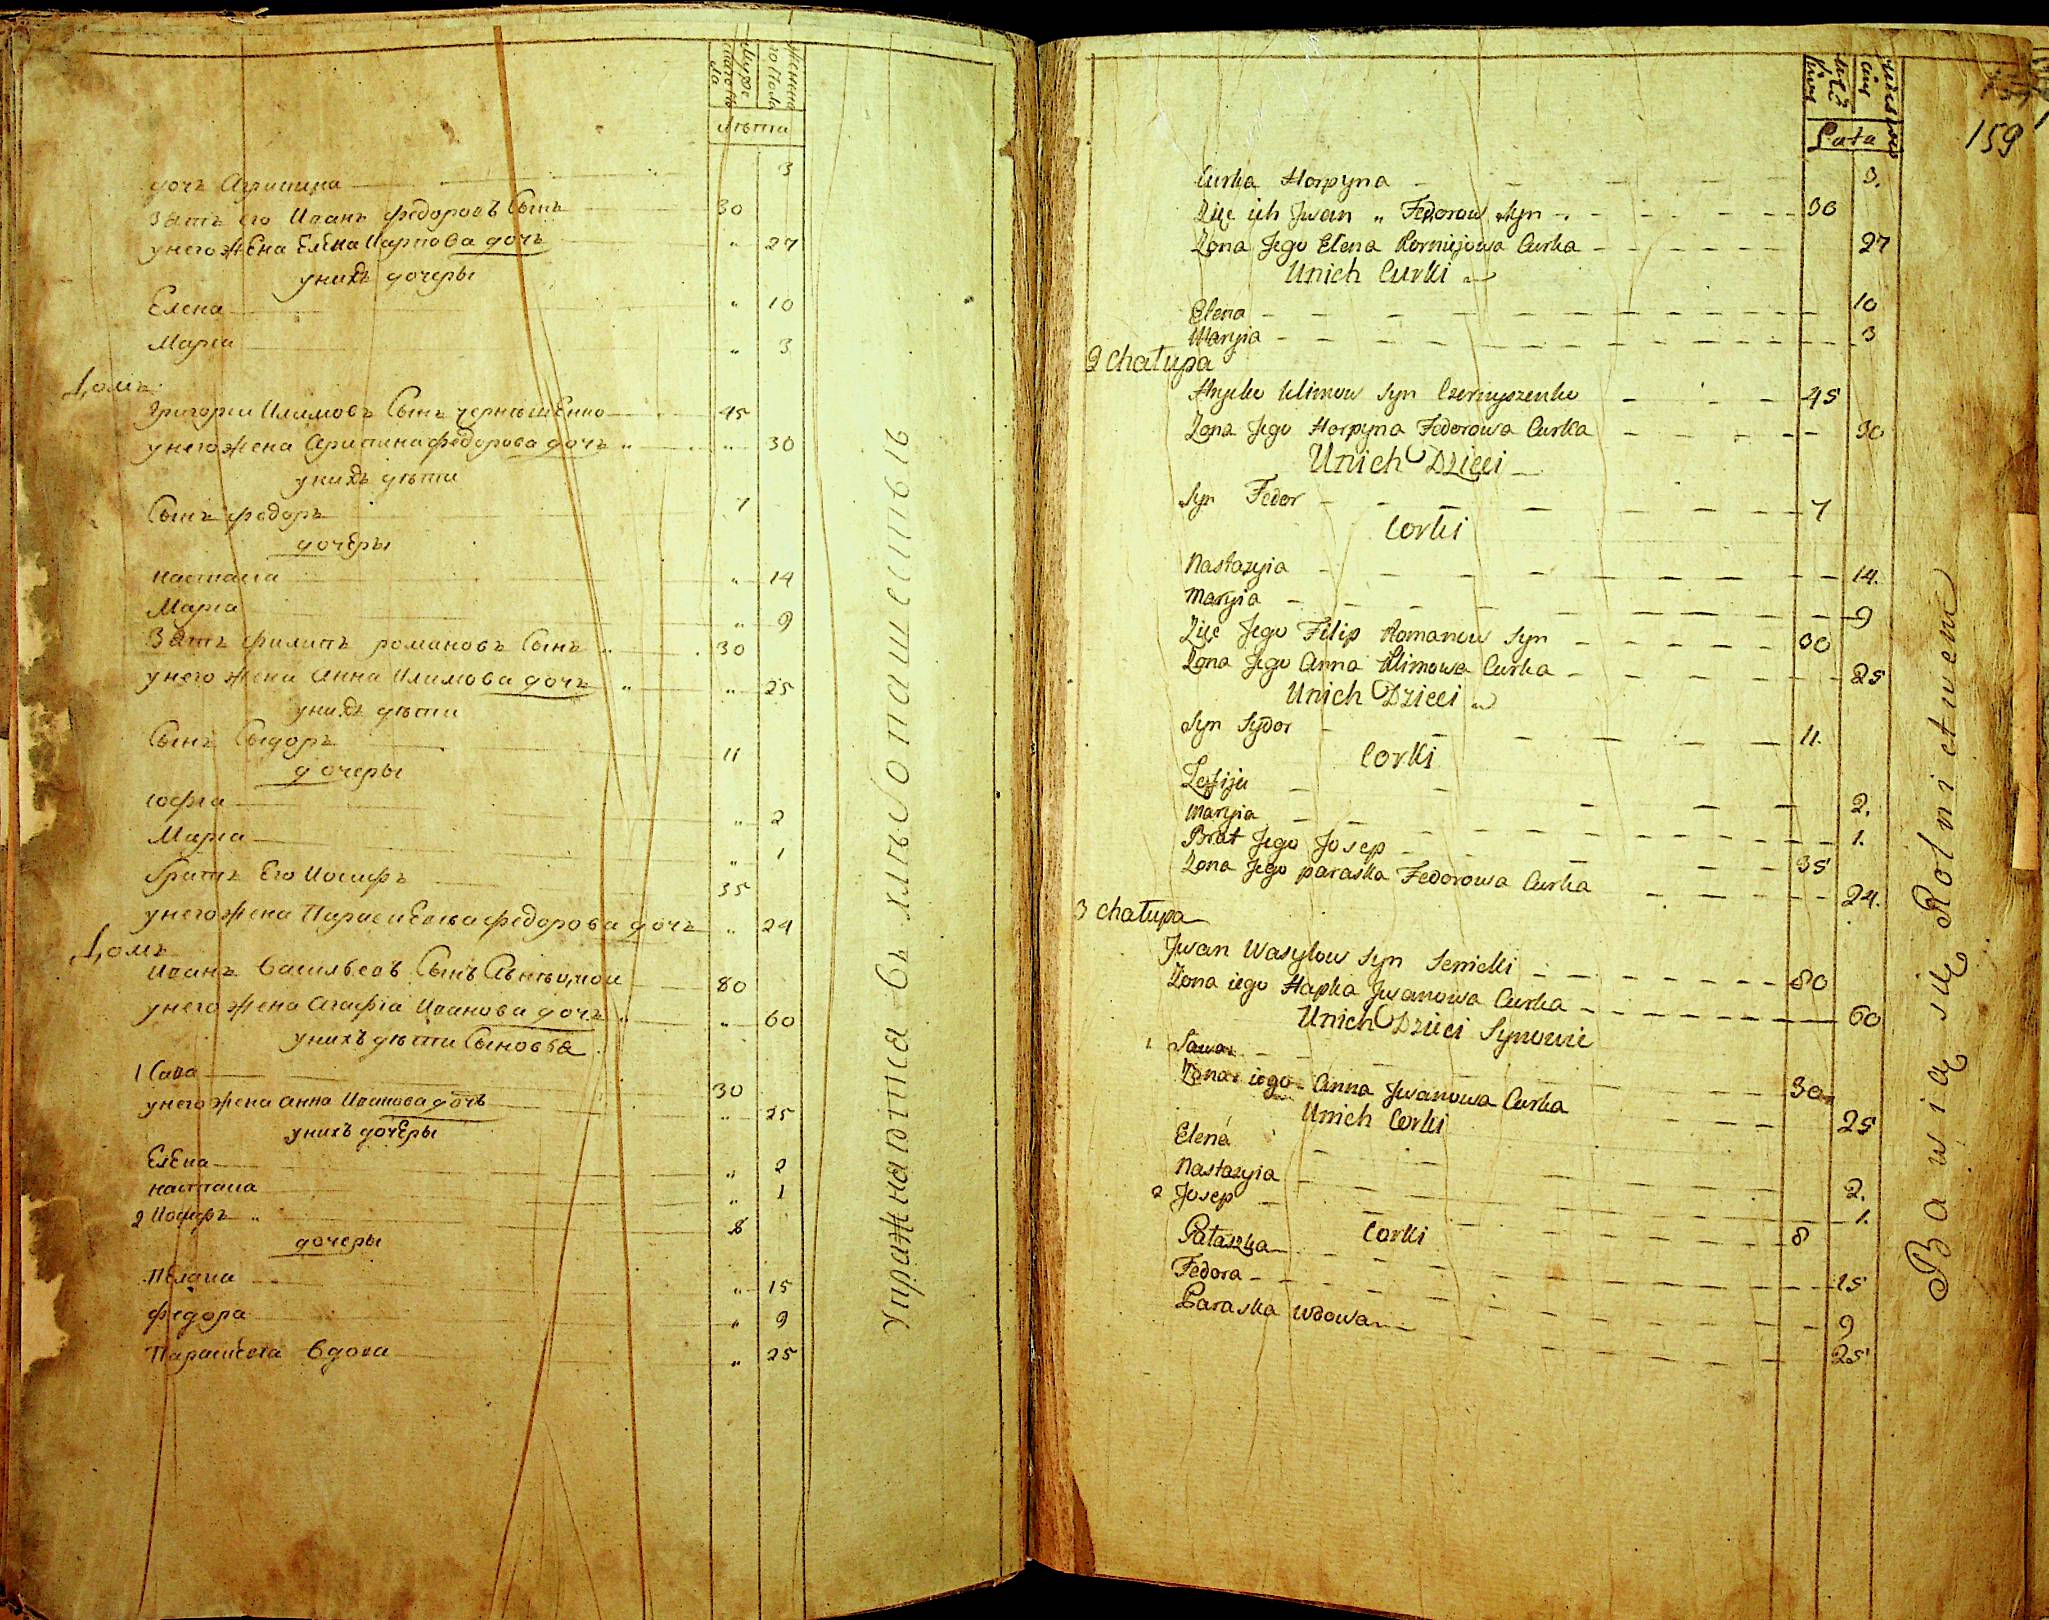 женска
по полъ
Лѣта
дочъ Агрипина 3
Зять его Иванъ федоровъ Сынъ 30
унего жЕна Елена Карпова дочъ " 27
унихъ дочеры
Елена " 10
Мариа " 3
Домъ
Григорей Климовъ Сынъ чернышЕнко 45
унего жена Агрипина федорова дочъ " 30
унихъ дѣти
Сынъ федоръ 7
дочЕры
настасиа " 14
Мариа " 9
Зять филипъ романовъ Сынъ 30
унего жена Анна Климова дочъ " 25
унихъ дѣти
Сынъ Сыдоръ 11
дочеры
софиа " 2
Мариа " 1
братъ Его Иосифъ 35
унего жена Параскевиа федорова дочъ " 24
Домъ
Иванъ васильевъ Сынъ 80
унего жена Агафиа Иванова дочъ " 60
унихъ дѣти Сыновьа
1 Сава 30
унего жена анна Иванова дочъ " 25
унихъ дочЕры
ЕлЕна " 2
настасиа " 1
2 Иосифъ " 8
дочеры
ПЕлагиа " 15
федора " 9
Параскева вдова " 25
Упражнаютса въ хлѣбопашествѣ
159
Lata
Curka Horpyna 3.
Zięc ich Jwan „ Fedorow Syn 30
Zona Jego Elena Korniejowa Curka 27
Unich Curki
Elena 10
Maryia 3
2 Chałupa
Hryćko Klimow Syn Czernyszenko 45
Zona Jego Horpyna Fedorowa Curka 30
Unich Dzieci
Syn Fedor 7
Corki
Nastazyia 14.
Maryia 9
Zięc Jego Filip Romanow Syn 30
Zona Jego Anna Klimowa Curka 25
Unich Dzieci
Syn Sydor 11.
Corki
Zofija 2.
Maryia 1.
Brat Jego Josep 35
Zona Jego paraska Fedorowa Curka 24.
3 Chałupa
Jwan Wasylow Syn Senicki 80
Zona iego Hapka Jwanowa Curka 60
Unich Dzieci Synowie
1 Sawa 30
Zona iego Anna Jwanowa Curka 25
Unich Corki
Elena 2.
Nastazyia 1.
2 Josep 8
Corki
Pałaszka 15
Fedora 9
Paraska Wdowa 25
Bawią się Rolnictwem